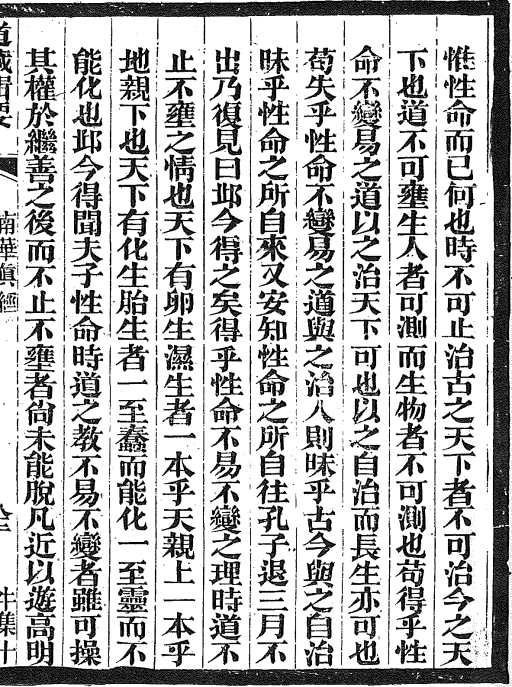 惟性命而已何也時不可止治古之天下者不可治今之天
下也道不可壅生人者可測而生物者不可測也苟得乎性
命不變易之道以之治天下可也以之自治而長生亦可也
苟失乎性命不變易之道與之治人則昧乎古今與之自治
昧乎性命之所自來又安知性命之所自往孔子退三月不
出乃復見曰邱今得之矣得乎性命不易不變之理時道不
止不壅之情也天下有卵生濕生者一本乎天親上一本乎
地親下也天下有化生胎生者一至蠢而能化一至靈而不
能化也邱今得聞夫子性命時道之教不易不變者雖可操
其權於繼善之後而不止不壅者尙未能脫凡近以遊高明
道藏輯要
南華眞經
牛集十